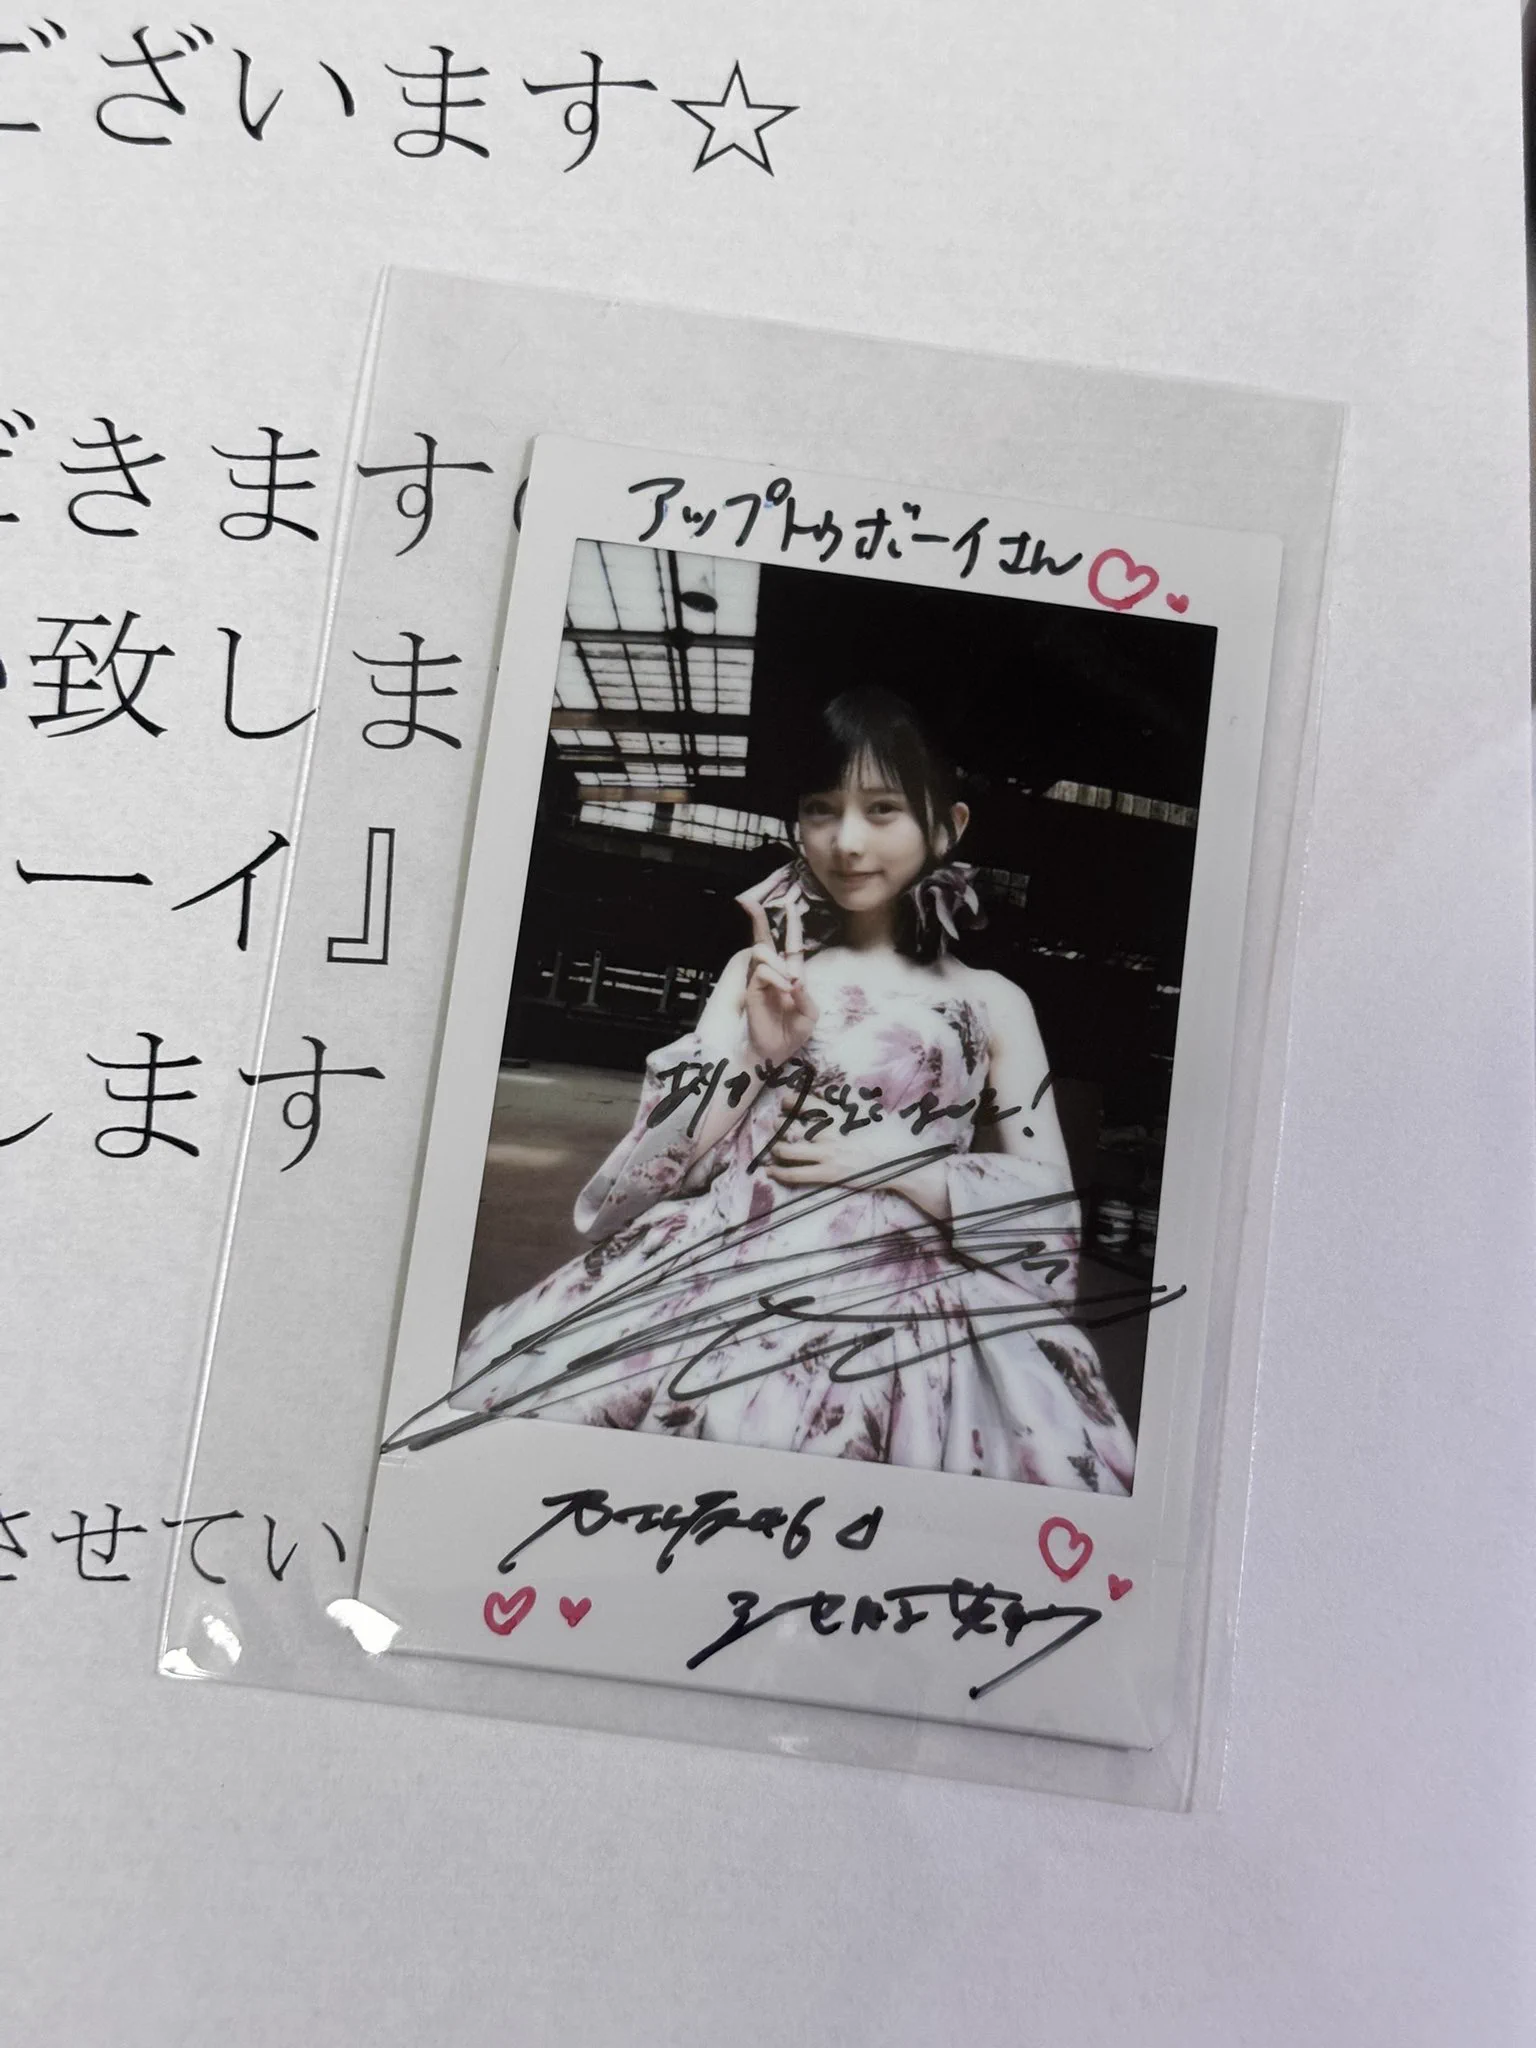 ございます☆
だきます。
致しま
ーイ』
します
させてい
アップトゥボーイさん♡♥
ありがとうございました!
乃木坂46
♡♥
♡♥